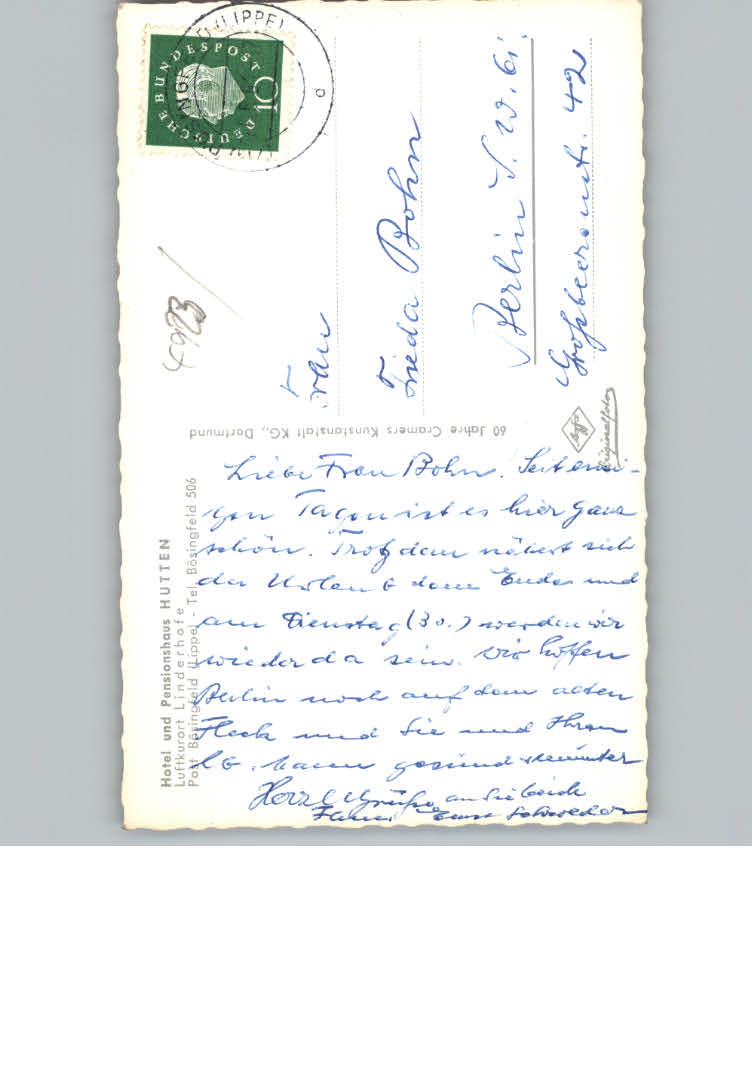 DEUTSCHE BUNDESPOST
10
(LIPPE)
a
Frau
Frieda Bohn
Berlin S.W. 61.
Großbeerenstr. 42
60 Jahre Cramers Kunstanstalt KG., Dortmund
Agfa
Originalfoto
Hotel und Pensionshaus HUTTEN
Luftkurort Linderhofe
Post Bösingfeld (Lippe) - Tel. Bösingfeld 506
Liebe Frau Bohn. Seit eini-
gen Tagen ist es hier ganz
schön. Trotzdem nähert sich
der Urlaub dem Ende und
am Dienstag (30.) werden wir
wieder da sein. Wir hoffen
Berlin noch auf dem alten
Fleck und Sie und Ihren
lb. Mann gesund u. munter
Herzl. Grüße an Sie beide
Ernst Schroeder